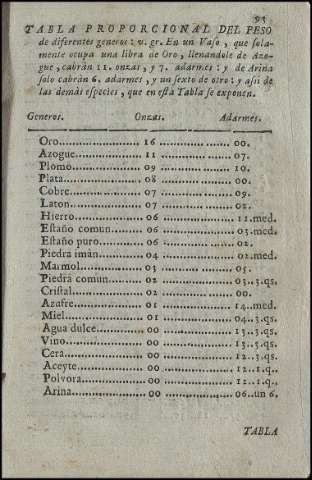 93
TABLA PROPORCIONAL DEL PESO
de diferentes generos: v. gr. En un Vaso, que sola-
mente ocupa una libra de Oro, llenandole de Azo-
gue, cabrán 11. onzas, y 7. adarmes: y de Arina
solo cabrán 6. adarmes, y un sexto de otro: y assi de
las demàs especies, que en esta Tabla se exponen.
Generos. Onzas. Adarmes.
Oro 16 00.
Azogue 11 07.
Plomo 09 10.
Plata 08 00.
Cobre 07 09.
Laton 07 02.
Hierro 06 11.med.
Estaño comun 06 03.med.
Estaño puro 06 02.
Piedra imán 04 02.med.
Marmol 03 05.
Piedra comun 02 03..3.qs.
Cristal 02 00.
Azafre 01 14.med.
Miel 01 04..3.qs.
Agua dulce 00 13..3.qs.
Vino 00 13..3.qs.
Cera 00 12..3.qs.
Aceyte 00 12..1.q.
Polvora 00 11..1.q.
Arina 00 06..un 6.
TABLA